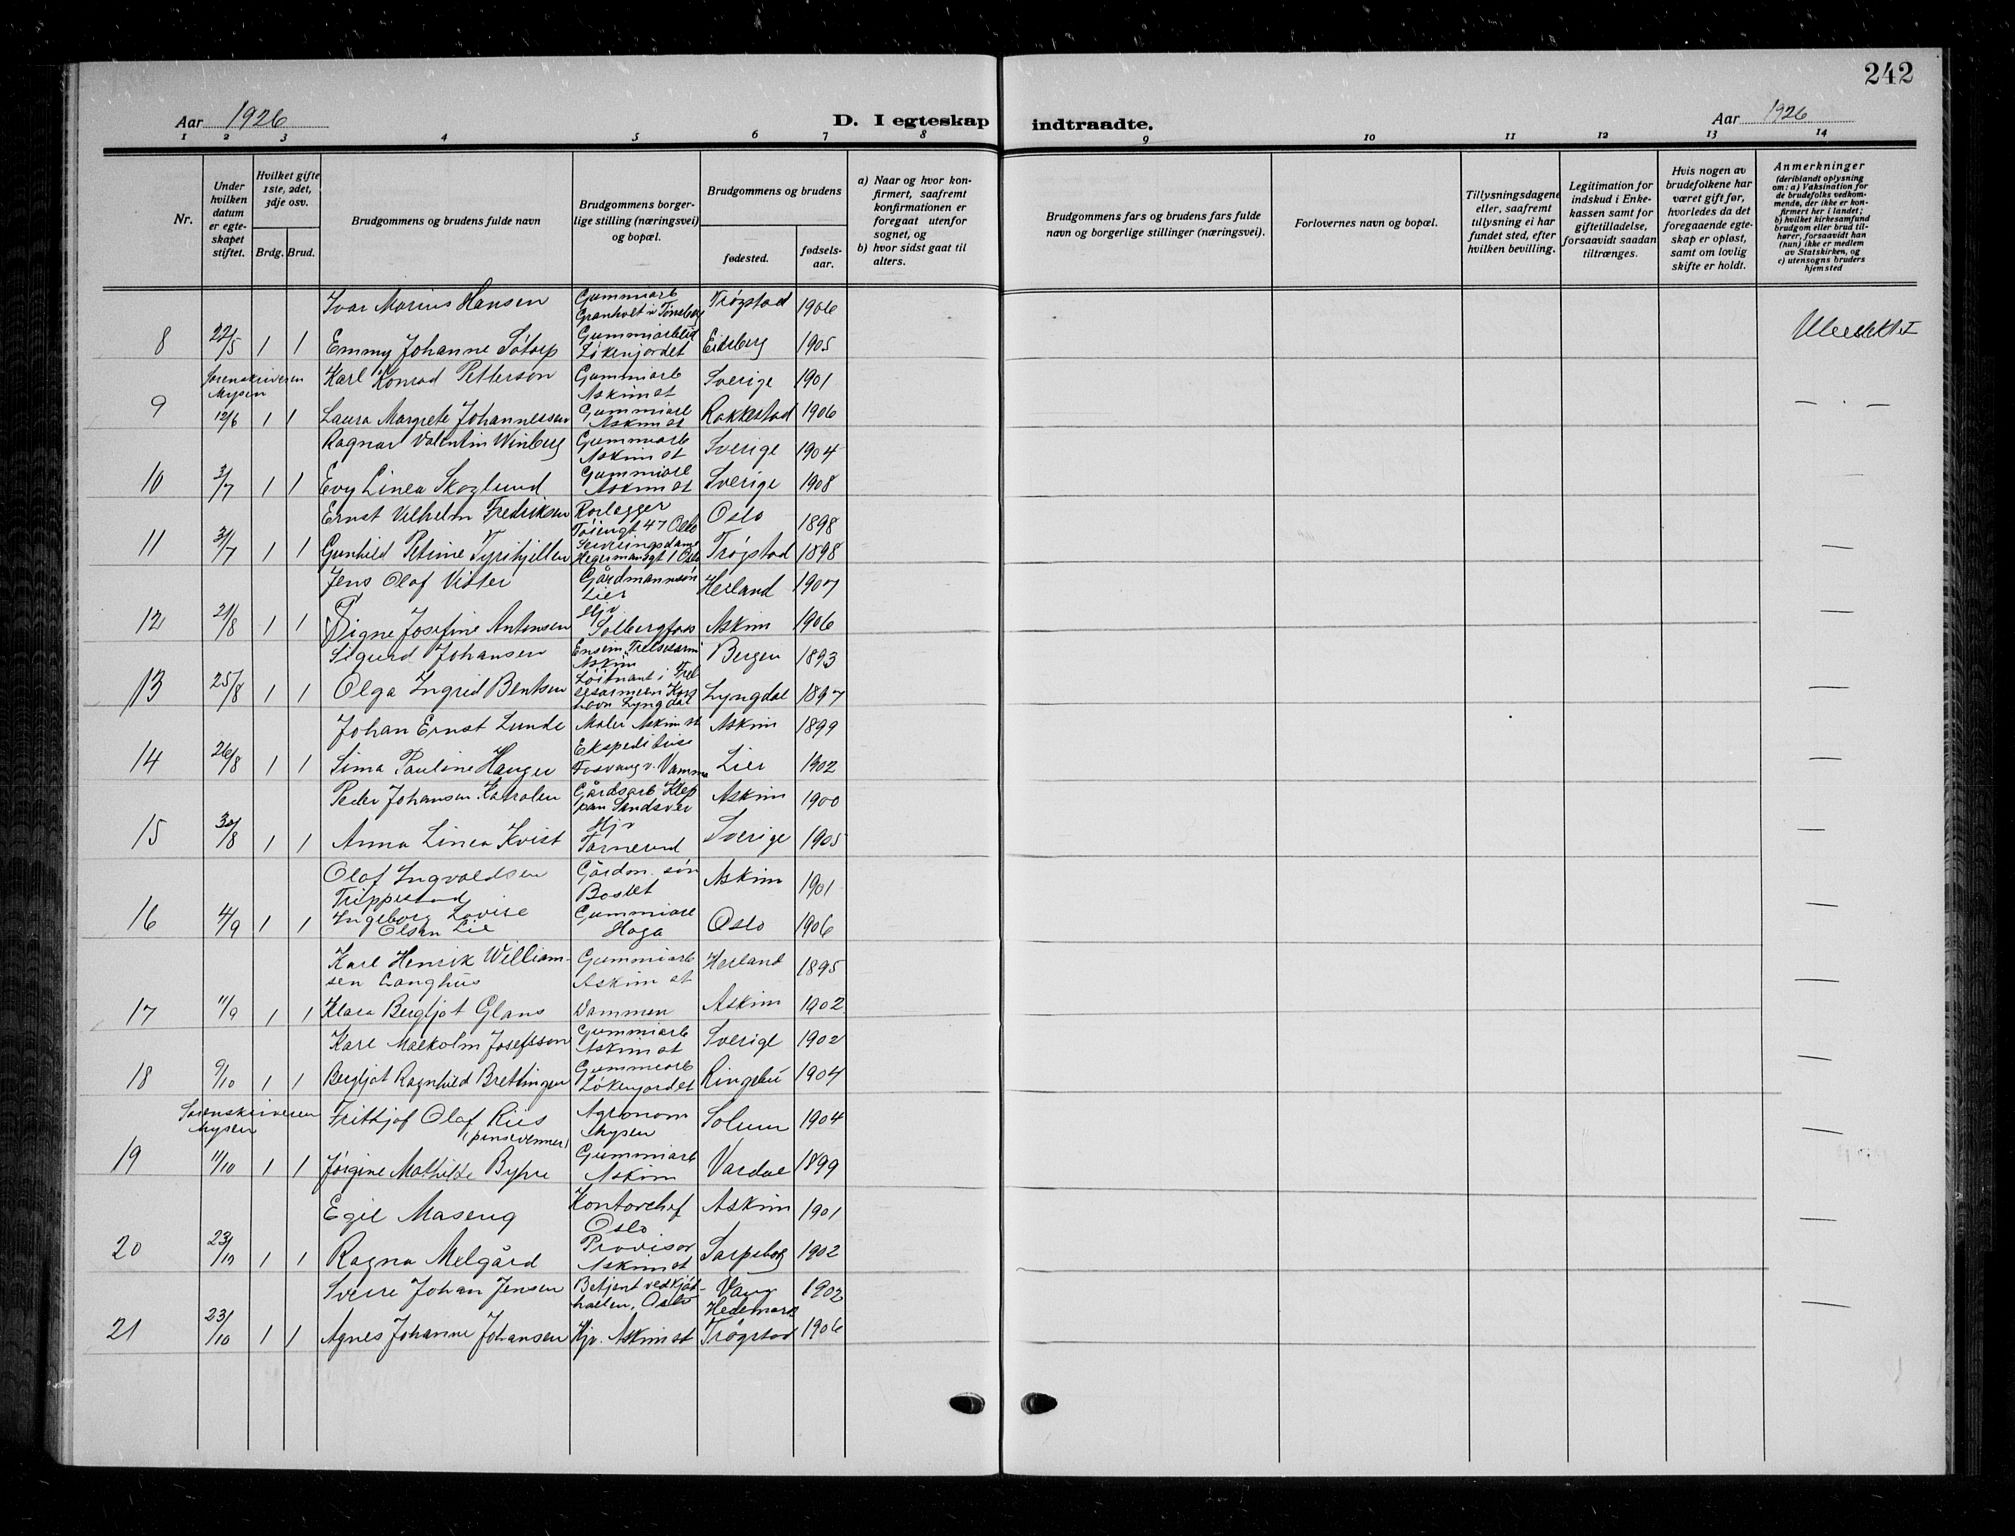 242
Aar 1926 D. I egteskap indtraadte. Aar 1926
1 2 3 4 5 6 7 8 9 10 11 12 13 14
Nr.
Under hvilken datum er egteskapet stiftet.
Hvilket gifte 1ste, 2det, 3dje osv.
Brdg. Brud.
Brudgommens og brudens fulde navn
Brudgommens borgerlige stilling (næringsvei) og bopæl.
Brudgommens og brudens
fødested.
fødselsaar.
a) Naar og hvor konfirmert, saafremt konfirmationen er foregaat utenfor sognet, og
b) hvor sidst gaat til alters.
Brudgommens fars og brudens fars fulde navn og borgerlige stillinger (næringsvei).
Forlovernes navn og bopæl.
Tillysningsdagene eller, saafremt tillysning ei har fundet sted, efter hvilken bevilling.
Legitimation for indskud i Enkekassen samt for giftetilladelse, forsaavidt saadan tiltrænges.
Hvis nogen av brudefolkene har været gift før, hvorledes da det foregaaende egteskap er opløst, samt om lovlig skifte er holdt.
Anmerkninger
(deriblandt oplysning om: a) Vaksination for de brudefolks vedkommende, der ikke er konfirmert her i landet; b) hvilket kirkesamfund brudgom eller brud tilhører, forsaavidt han (hun) ikke er medlem av Statskirken, og c) utensogns bruders hjemsted
Ivar Marius Hansen Gummiarb Granholt v Tønsberg Trøgstad 1906
8 22/5 1 1 Emmy Johanne Søtorp Gummiarbeid Løkenjordet Eidsberg 1905
Sorenskriveren Mysen Karl Konrad Petterson Gummiarb Askim st Sverige 1901
9 12/6 1 1 Laura Margrete Johannessen Gummiarb Askim st Rakkestad 1906
Ragnar Valentin Winberg Gummiarb Askim st Sverige 1904
10 3/7 1 1 Evy Linea Skoglund Gummiarb Askim st Sverige 1908
Ernst Vilhelm Fredriksen Rørlegger Tøiengt 47 Oslo Oslo 1898
11 31/7 1 1 Gunhild Petrine Tyrihjellen Serveringsdame Hegermansgt 1 Oslo Trøgstad 1898
Jens Olaf Vister Gårdmannsøn Lier Herland 1907
12 21/8 1 1 Signe Josefine Antonsen Hjv Solbergfoss Askim 1906
Sigurd Johansen Askim Bergen 1893
13 25/8 1 1 Olga Ingrid Bentsen Løitnant i Frelsesarmeen Lyngdal Lyngdal 1897
Johan Ernst Lunde Maler Askim st Askim 1899
14 26/8 1 1 Sima Pauline Hauger Ekspeditrise Fosvang v. Vamma Lier 1902
Peder Johansen Gårdsarb Askim 1900
15 30/8 1 1 Anna Linea Kvist Hjv Tornerud Sverige 1905
Olaf Ingvaldsen Trippestad Gårdm. søn Askim 1901
16 4/9 1 1 Ingeborg Lovise Olsen Lie Gummiarb Haga Oslo 1906
Karl Henrik Williamsen Langhus Gummiarb Askim st Herland 1895
17 11/9 1 1 Klara Bergljot Glans Dammen Askim 1902
Karl Malkolm Josefsson Gummiarb Askim st Sverige 1902
18 9/10 1 1 Bergljot Ragnhild Brettingen Gummiarb Løkenjordet Ringebu 1904
Sorenskriveren Mysen Frithjof Olaf Riis (pinsevenner) Agronom Mysen Solum 1904
19 11/10 1 1 Jørgine Mathilde Bypre Gummiarb Askim Vardal 1899
Egil Maseng Kontorchef Oslo Askim 1901
20 23/10 1 1 Ragna Melgård Provisor Askim st Sarpsborg 1902
Sverre Johan Jensen Betjent ved kjøthallen, Oslo Vang Hedemark 1902
21 23/10 1 1 Agnes Johanne Johansen Hjv. Askim st Trøgstad 1906